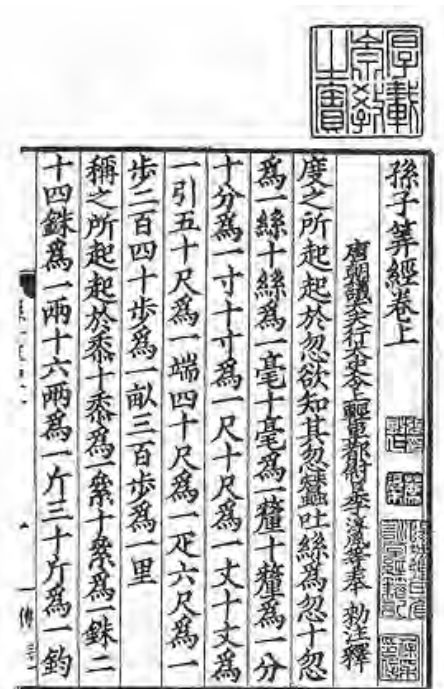 孫子筭經卷上
唐朝議大夫行太史令上輕車都尉臣李淳風等奉 勅注釋
度之所起起於忽欲知其忽蠶吐絲爲忽十忽
爲一絲十絲爲一毫十毫爲一釐十釐爲一分
十分爲一寸十寸爲一尺十尺爲一丈十丈爲
一引五十尺爲一端四十尺爲一疋六尺爲一
步二百四十步爲一畝三百步爲一里
稱之所起起於黍十黍爲一絫十絫爲一銖二
十四銖爲一兩十六兩爲一斤三十斤爲一鈞